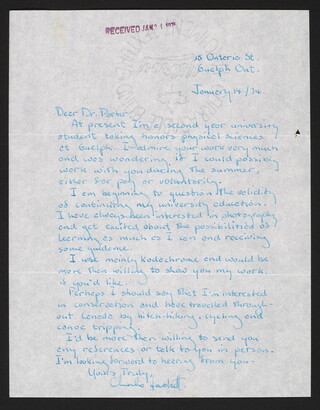 RECEIVED JAN 21 1974
15 Ontario St.
Guelph Ont.
January 14/74.
Dear Dr. Porter
At present I'm a second year university
student taking honors physical sciences
at Guelph. I admire your work very much
and was wondering if I could possibly
work with you during the summer,
either for pay or voluntarily.
I am beginning to question the validity
of continuing my university education.
I have always been interested in photography
and get excited about the possibilities of
learning as much as I can and receiving
some guidance.
I use mainly Kodachrome and would be
more than willing to show you my work
if you'd like.
Perhaps I should say that I'm interested
in conservation and have travelled through-
out Canada by hitch-hiking, cycling and
canoe tripping.
I'd be more than willing to send you
any references or talk to you in person.
I'm looking forward to hearing from you.
Yours Truly,